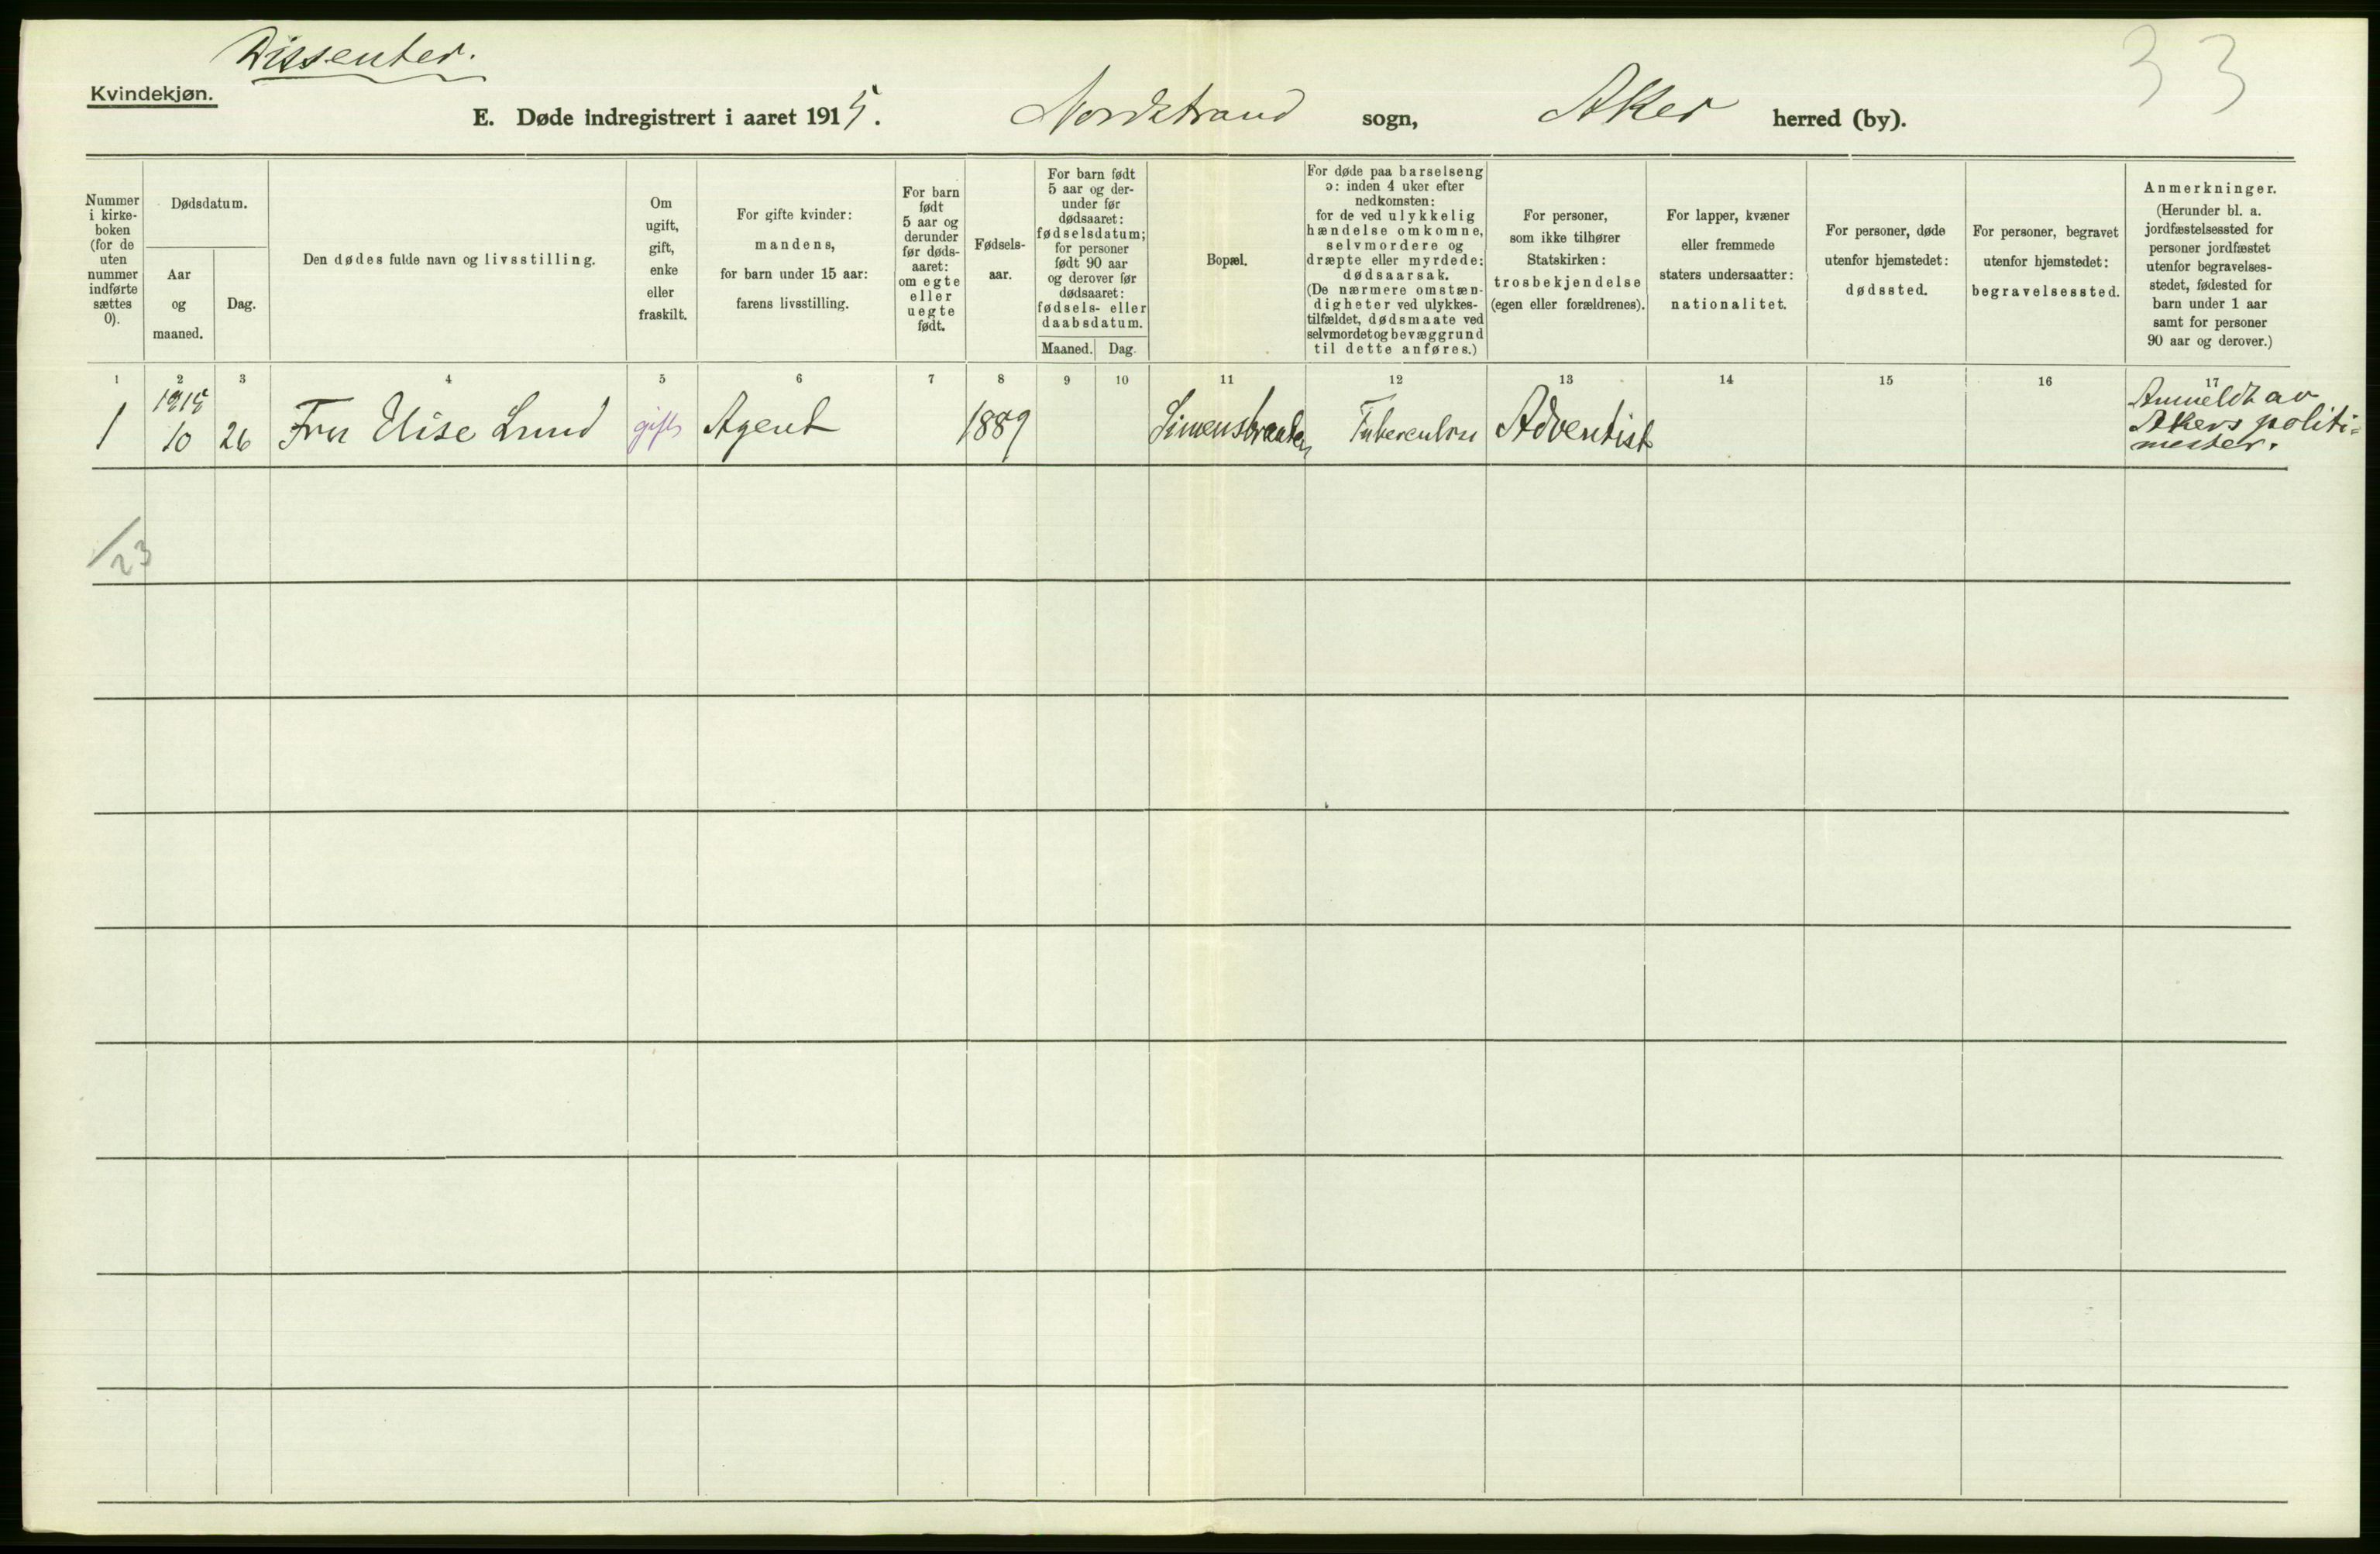 Dissenter.
33
Kvindekjøn.
E. Døde indregistrert i aaret 1915. Nordstrand sogn, Aker herred (by).
Nummer
i kirke-
boken
(for de
uten
nummer
indførte
sættes
0).
Dødsdatum.
Aar
og
maaned.
Dag.
Den dødes fulde navn og livsstilling.
Om
ugift,
gift,
enke
eller
fraskilt.
For gifte kvinder:
mandens,
for barn under 15 aar:
farens livsstilling.
For barn
født
5 aar og
derunder
før døds-
aaret:
om egte
eller
uegte
født.
Fødsels-
aar.
For barn født
5 aar og der-
under før
dødsaaret:
fødselsdatum;
for personer
født 90 aar
og derover før
dødsaaret:
fødsels- eller
daabsdatum.
Maaned. Dag.
Bopæl.
For døde paa barselseng
ɔ: inden 4 uker efter
nedkomsten:
for de ved ulykkelig
hændelse omkomne,
selvmordere og
dræpte eller myrdede:
dødsaarsak.
(De nærmere omstæn-
digheter ved ulykkes-
tilfældet, dødsmaate ved
selvmordet og bevæggrund
til dette anføres.)
For personer,
som ikke tilhører
Statskirken:
trosbekjendelse
(egen eller forældrenes).
For lapper, kvæner
eller fremmede
staters undersaatter:
nationalitet.
For personer, døde
utenfor hjemstedet:
dødssted.
For personer, begravet
utenfor hjemstedet:
begravelsessted.
Anmerkninger.
(Herunder bl. a.
jordfæstelsessted for
personer jordfæstet
utenfor begravelses-
stedet, fødested for
barn under 1 aar
samt for personer
90 aar og derover.)
1 2 3 4 5 6 7 8 9 10 11 12 13 14 15 16 17
1 1915 10 26 Fru Elise Lund gift Agent 1889 Simensbraaten Tuberculose Adventist Anmeldt av
Akers politi=
mester.
/23